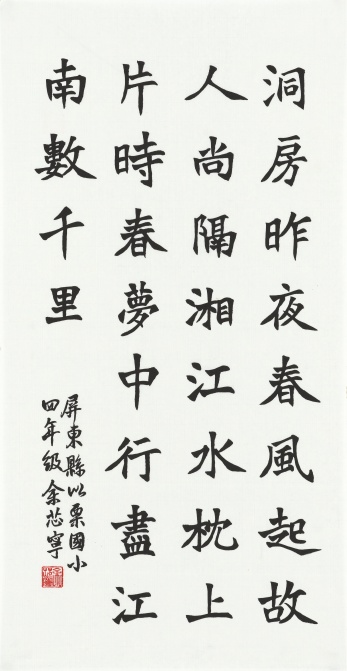 洞房昨夜春風起故
人尚隔湘江水枕上
片時春夢中行盡江
南數千里
屏東縣以栗國小
四年級余芯寧